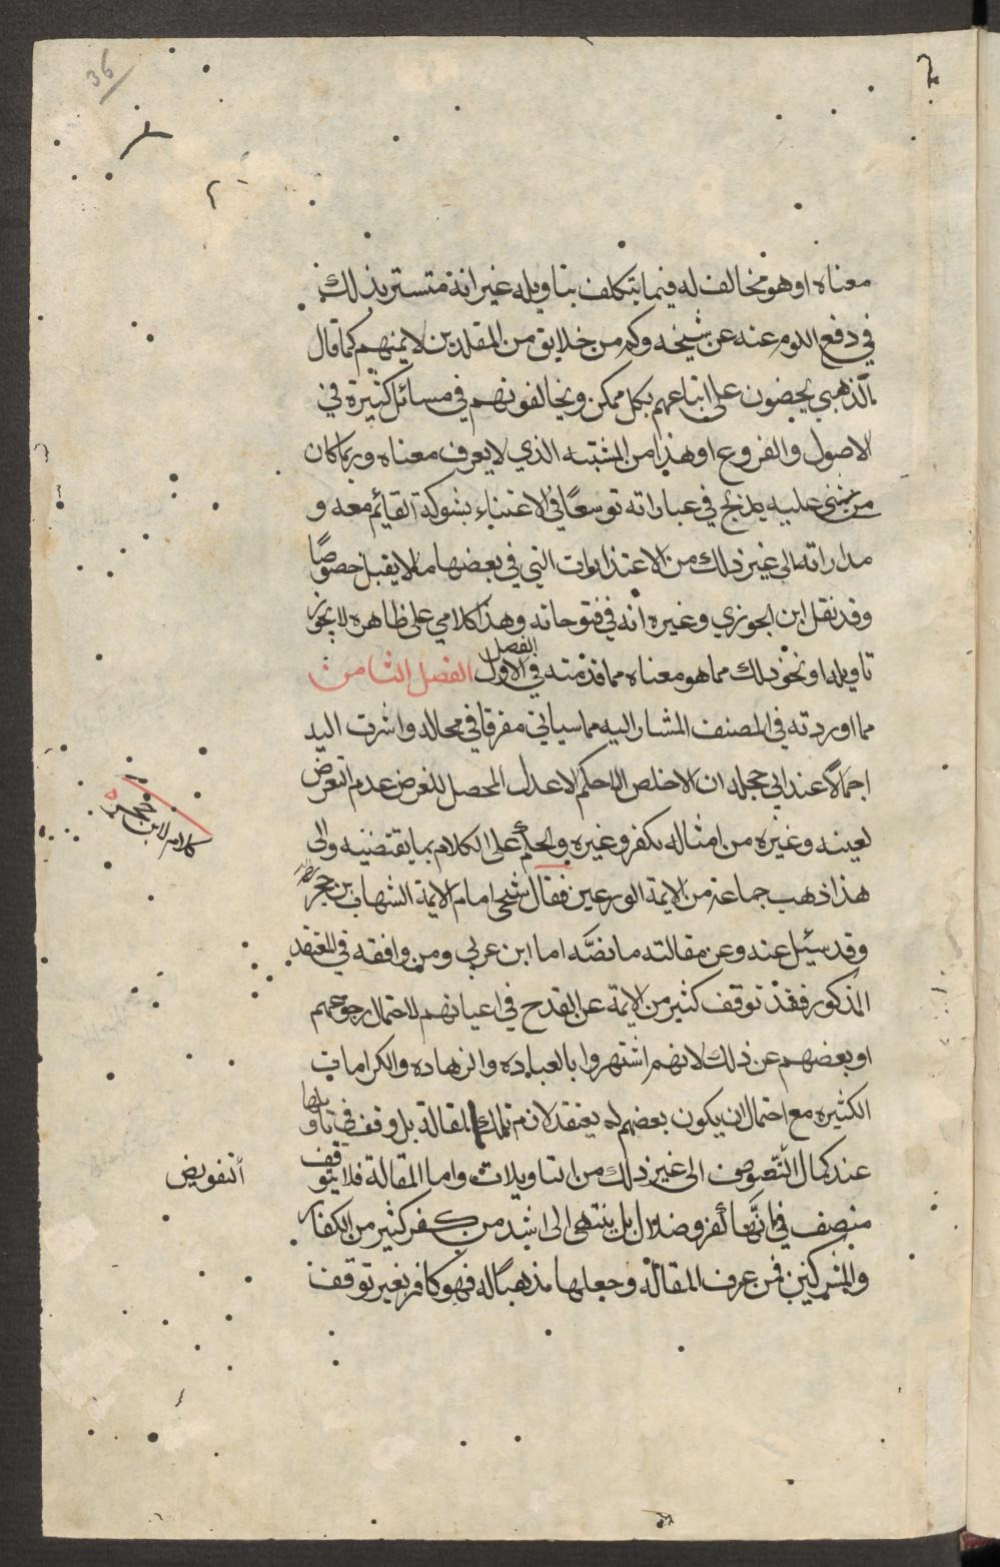 36
معناه او هو مخالف له فيما يتكلف بتاويله غير انه متستر بذلك
في دفع اللوم عنه عن شيخه وكم من خلايق من المقلدين لايمنهم كما قال
الذهبي يحضون على اتباعهم بكل ممكن ويخالفونهم في مسائل كثيرة في
الاصول والفروع او هذا من المشتبه الذي لا يعرف معناه وربما كان
من يثني عليه يدبج في عباراته توسعًا في الاعتناء بشوكة القائم معه و
مداراته الى غير ذلك من الاعتذارات التي في بعضها ما لا يقبل خصوصًا
وقد نقل ابن الجوزي وغيره انه في فتوحاته وهذا كلامي على ظاهره لا يجوز
تاويله او نحو ذلك مما هو معناه مما قدمته في الفصل الاول الفصل الثامن
مما اوردته في المصنف المشار اليه مما سياتي مفرقا في محاله واشرت اليه
اجمالاً عند ابي حجلة ان الاخلص الاحكم الاعدل المحصل للغرض عدم التعرض
لعينه وغيره من امثاله بكفر وغيره والحكم على الكلام بما يقتضيه والى
هذا ذهب جماعة من الايمة الورعين فقال شيخي امام الايمة الشهاب بن حجر
كلام لابن حجر
وقد سئيل عنه وعن مقالته ما نصّه اما ابن عربي ومن وافقه في المعتقد
المذكور فقد توقف كثير من الايمة عن القدح في اعيانهم لاحتمال رجوعهم
او بعضهم عن ذلك لانهم اشتهروا بالعباده والزهاده والكرامات
الكثيره مع احتمال ان يكون بعضهم لم يعتقد لازم تلك المقالة بل وقف في تاويلها
عند كمال النصوص الى غير ذلك من التاويلات واما المقالة فلا يتوقف
التفويض
منصف في انها كفر وضلال بل ينتهي الى اشد من كفر كثير من الكفار
والمشركين فمن عرف المقالة وجعلها مذهبًا له فهو كافر بغير توقف